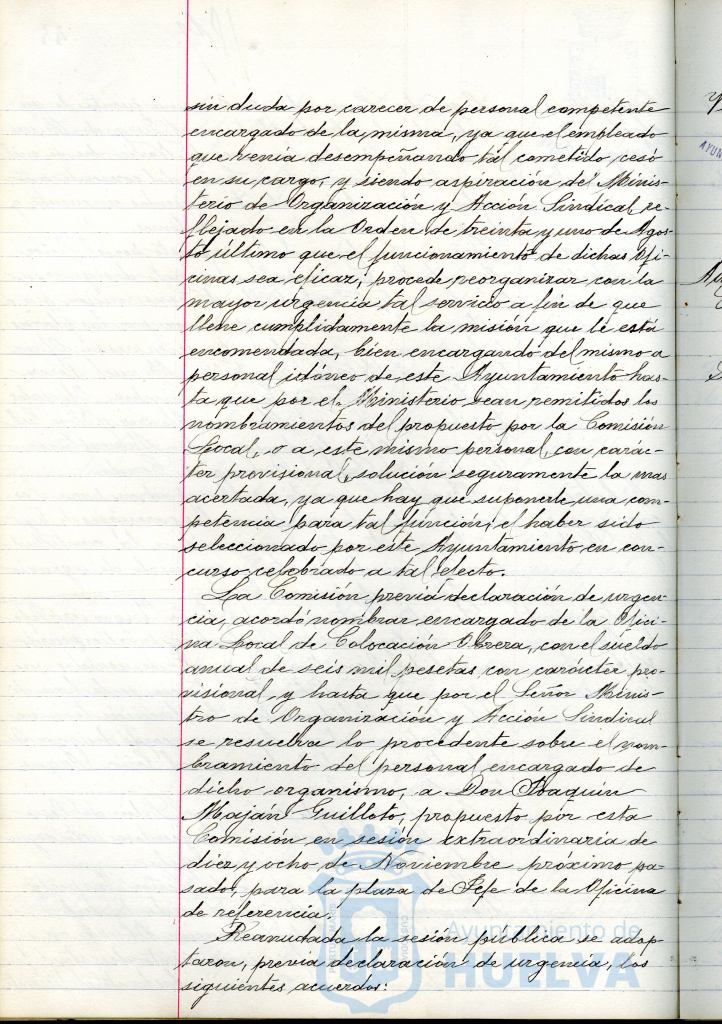 sin duda por carecer de personal competente
encargado de la misma, ya que el empleado
que venía desempeñando tal cometido cesó
en su cargo, y siendo aspiración del Minis-
terio de Organización y Acción Sindical, re-
flejado en la Orden de treinta y uno de Agos-
to último que el funcionamiento de dichas Ofi-
cinas sea eficaz, procede reorganizar con la
mayor urgencia tal servicio a fin de que
llene cumplidamente la misión que le está
encomendada, bien encargando del mismo a
personal idóneo de este Ayuntamiento has-
ta que por el Ministerio sean remitidos los
nombramientos del propuesto por la Comisión
Local, o a este mismo personal, con carác-
ter provisional, solución seguramente la mas
acertada, ya que hay que suponerle una com-
petencia para tal función, el haber sido
seleccionado por este Ayuntamiento en con-
curso celebrado a tal efecto.
La Comisión previa declaración de urgen-
cia, acordó nombrar encargado de la Ofici-
na Local de Colocación Obrera, con el sueldo
anual de seis mil pesetas con carácter pro-
visional y hasta que por el Señor Minis-
tro de Organización y Acción Sindical
se resuelva lo procedente sobre el nom-
bramiento del personal encargado de
dicho organismo, a Don Joaquín
Maján Guilloto, propuesto por esta
Comisión en sesión extraordinaria de
diez y ocho de Noviembre próximo pa-
sado, para la plaza de Jefe de la Oficina
de referencia.
Reanudada la sesión pública se adop-
taron, previa declaración de urgencia, los
siguientes acuerdos:
Ayuntamiento de
HUELVA